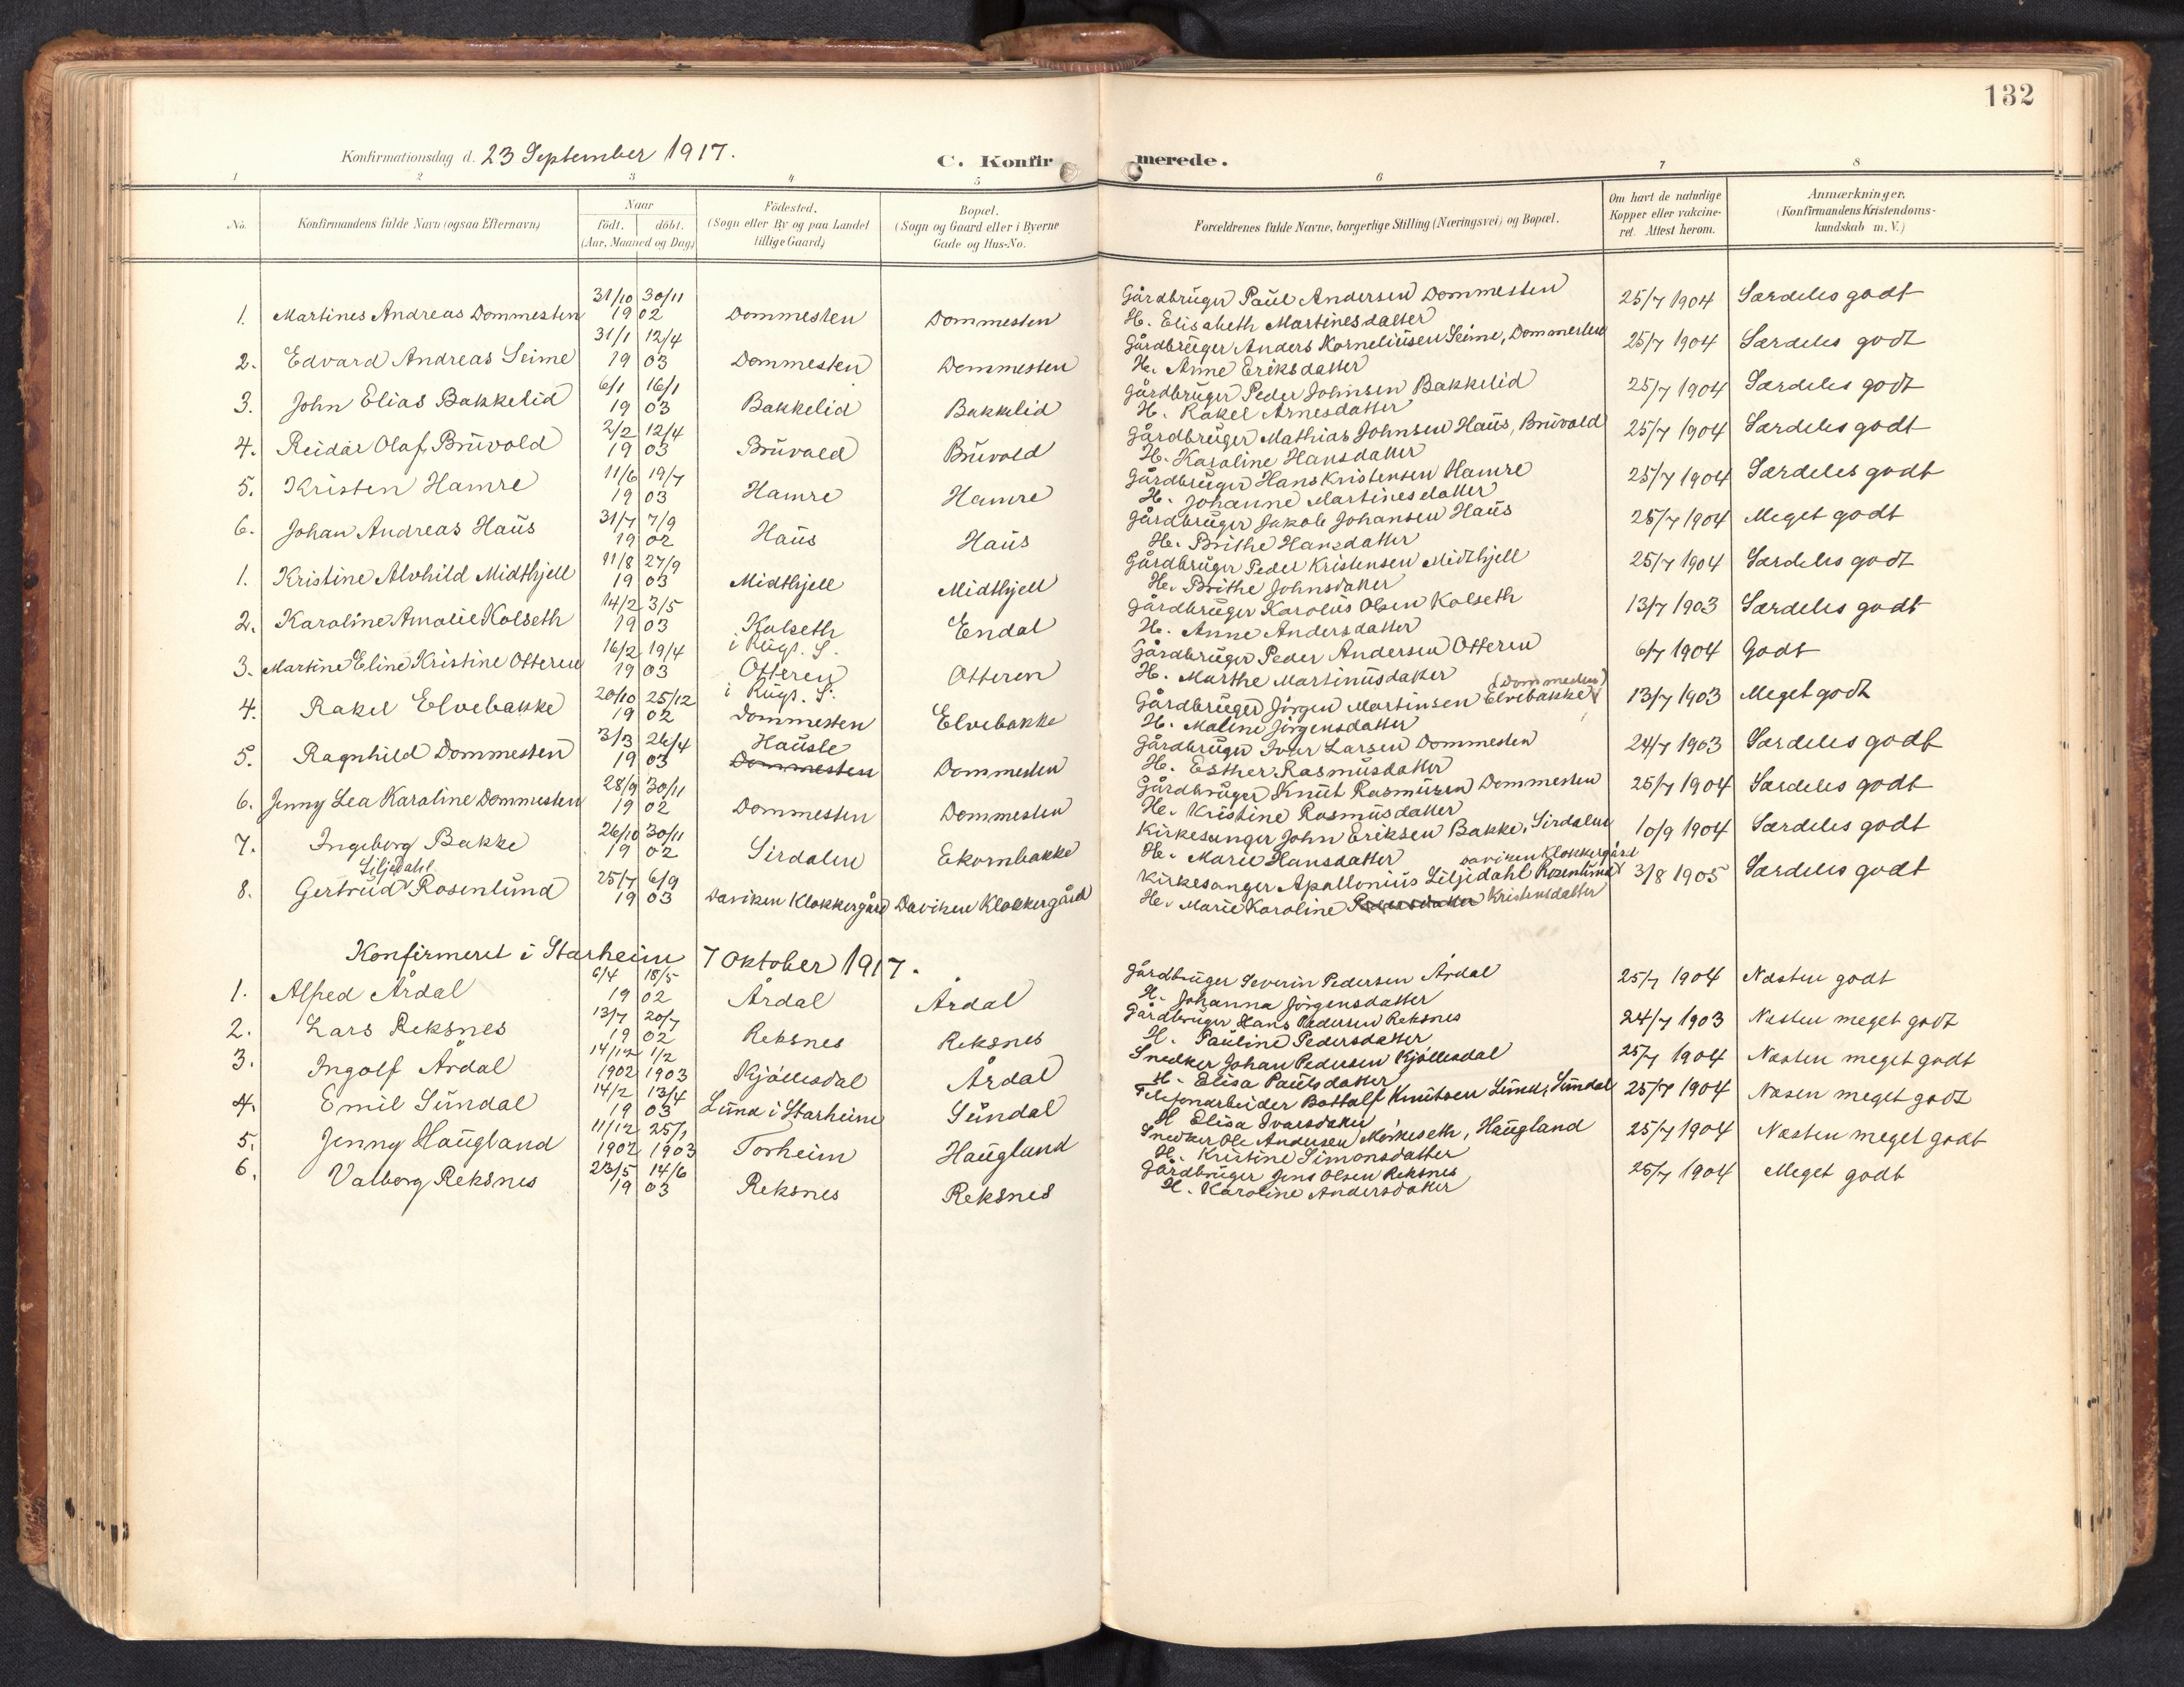 132
Konfirmationsdag d. 23 September 1917.
C. Konfirmerede.
1 2 3 4 5 6 7 8
No.
Konfirmandens fulde Navn (ogsaa Efternavn)
Naar
födt. döbt.
(Aar, Maaned og Dag)
Födested.
(Sogn eller By og paa Landet
tillige Gaard)
Bopæl.
(Sogn og Gaard eller i Byerne
Gade og Hus-No.
Forældrenes fulde Navne, borgerlige Stilling (Næringsvei) og Bopæl.
Om havt de naturlige
Kopper eller vakcine-
ret. Attest herom.
Anmærkninger.
(Konfirmandens Kristendoms-
kundskab m. V.)
1. Martines Andreas Dommesten 31/10 1902 30/11 Dommesten Dommesten Gårdbrüger Paul Andersen Dommesten 25/7 1904 Særdeles godt
H. Elisabeth Martinesdatter
2. Edvard Andreas Seime 31/1 12/4 1903 Dommesten Dommesten Gårdbrüger Anders Korneliüsen Seime, Dommesten 25/7 1904 Særdeles godt
H. Anne Eriksdatter
3. John Elias Bakkelid 6/1 16/1 1903 Bakkelid Bakkelid Gårdbrüger Peder Johnsen Bakkelid 25/7 1904 Særdeles godt
H. Rakel Arnesdatter
4. Reidar Olaf Brüvold 2/2 12/4 1903 Brüvold Brüvold Gårdbrüger Mathias Johnsen Haüs, Brüvold 25/7 1904 Særdeles godt
H. Karoline Hansdatter
5. Kristen Hamre 11/6 19/7 1903 Hamre Hamre Gårdbrüger Hans Kristensen Hamre 25/7 1904 Særdeles godt
H. Johanne Martinesdatter
6. Johan Andreas Haüs 31/7 7/9 1902 Haüs Haüs Gårdbrüger Jakob Johansen Haüs 25/7 1904 Meget godt
H. Brithe Hansdatter
1. Kristine Alvhild Midthjell 11/8 27/9 1903 Midthjell Midthjell Gårdbrüger Peder Kristensen Midthjell 25/7 1904 Særdeles godt
H. Brithe Johnsdatter
2. Karoline Amalie Kolseth 14/2 3/5 1903 Kolseth Endal Gårdbrüger Karolüs Olsen Kolseth 13/7 1903 Særdeles godt
i Rügs. S. H. Anne Andersdatter
3. Martine Eline Kristine Otteren 16/2 19/4 1903 Otteren Otteren Gårdbrüger Peder Andersen Otteren 6/7 1904 Godt
i Rügs. S. H. Marthe Martinüsdatter
4. Rakel Elvebakke 20/10 25/12 1902 Dommesten Elvebakke Gårdbrüger Jörgen Martinsen Elvebakke (Dommesten) 13/7 1903 Meget godt
H. Maline Jörgensdatter
5. Ragnhild Dommesten 3/3 26/4 1903 Haüsle Dommesten Dommesten Gårdbrüger Ivar Larsen Dommesten 24/7 1903 Særdeles godt
H. Esther Rasmüsdatter
6. Jenny Lea Karoline Dommesten 28/9 30/11 1902 Dommesten Dommesten Gårdbrüger Knüt Rasmüsen Dommesten 25/7 1904 Særdeles godt
H. Kristine Rasmüsdatter
7. Ingeborg Bakke 26/10 30/11 1902 Sirdalen Ekornbakke Kirkesanger John Eriksen Bakke, Sirdalen 10/9 1904 Særdeles godt
H. Marie Hansdatter
8. Gertrüd Liljedahl Rosenlünd 25/7 6/9 1903 Daviken Klokkergård Daviken Klokkergård Kirkesanger Apolloniüs Liljedahl Rosenlünd Daviken Klokkergård 3/8 1905 Særdeles godt
H. Marie Karoline Pedersdatter Kristensdatter
Konfirmeret i Starheim 7 Oktober 1917.
1. Alfred Årdal 6/4 18/5 1902 Årdal Årdal Gårdbrüger Severin Pedersen Årdal 25/7 1904 Næsten godt
H. Johanna Jörgensdatter
2. Lars Reksnes 13/7 20/7 1902 Reksnes Reksnes Gårdbrüger Hans Pedersen Reksnes 24/7 1903 Næsten meget godt
H. Pauline Pedersdatter
3. Ingolf Årdal 14/12 1902 1/2 1903 Kjöllesdal Årdal Snedker Johan Pedersen Kjöllesdal 25/7 1904 Næsten meget godt
H. Elisa Paulsdatter
4. Emil Sündal 14/2 13/4 1903 Lünd i Starheim Sündal Telefonarbeider Bottolf Knütsen Lünd, Sündal 25/7 1904 Næsen meget godt
H Elisa Ivarsdatter
5. Jenny Haügland 11/12 1902 25/1 1903 Torheim Haügland Snedker Ole Andersen Mörkeseth, Haügland 25/7 1904 Næsten meget godt
H. Kristine Simonsdatter
6. Valborg Reksnes 23/5 14/6 1903 Reksnes Reksnes Gårdbrüger Jens Olsen Reksnes 25/7 1904 Meget godt
H. Karoline Andersdatter